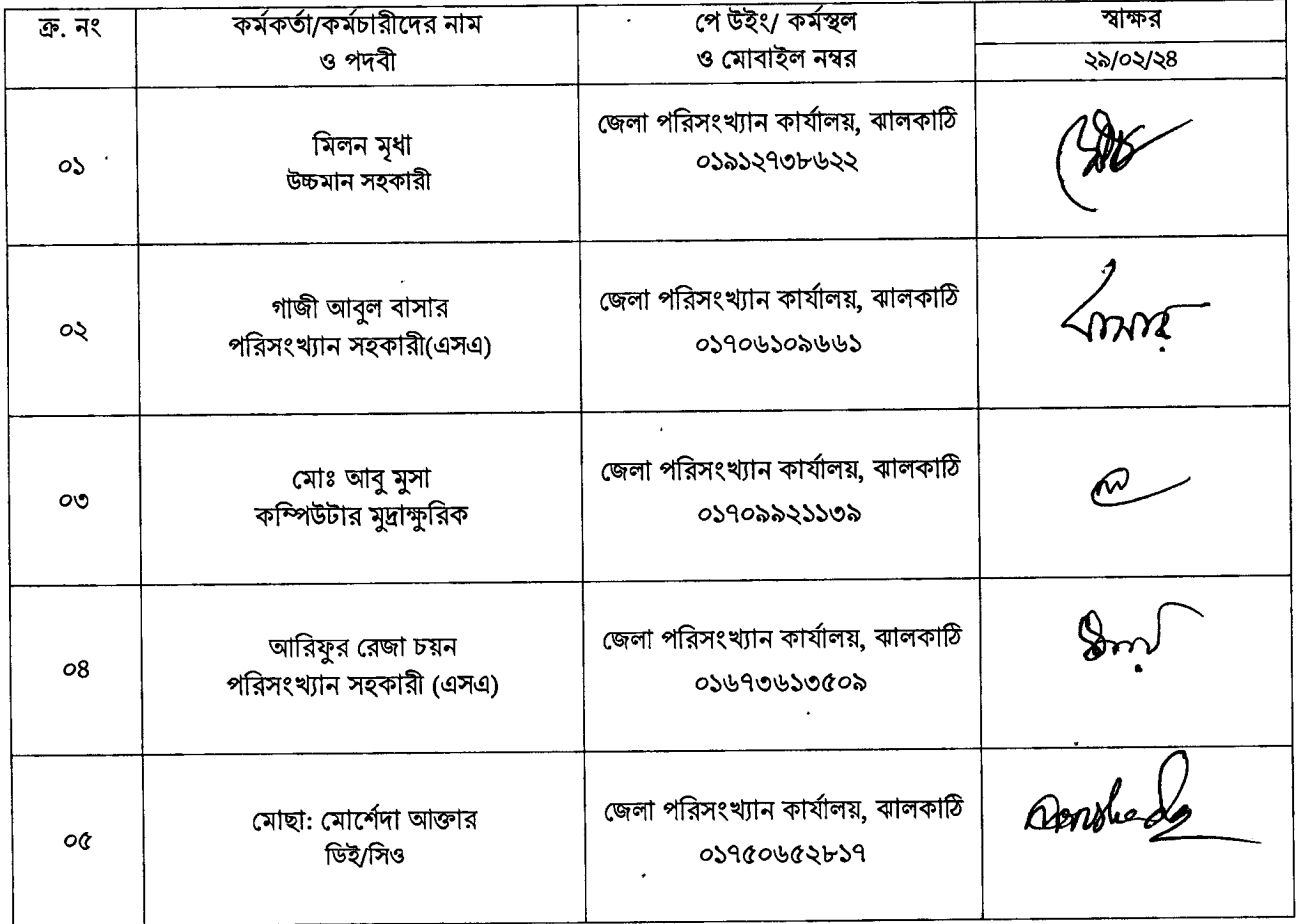 ক্র. নং
কর্মকর্তা/কর্মচারীদের নাম
ও পদবী
পে উইং/ কর্মস্থল
ও মোবাইল নম্বর
স্বাক্ষর
২৯/০২/২৪
০১
মিলন মৃধা
উচ্চমান সহকারী
জেলা পরিসংখ্যান কার্যালয়, ঝালকাঠি
০১৯১২৭৩৮৬২২
০২
গাজী আবুল বাসার
পরিসংখ্যান সহকারী(এসএ)
জেলা পরিসংখ্যান কার্যালয়, ঝালকাঠি
০১৭০৬১০৯৬৬১
বাসার
০৩
মোঃ আবু মুসা
কম্পিউটার মুদ্রাক্ষুরিক
জেলা পরিসংখ্যান কার্যালয়, ঝালকাঠি
০১৭০৯৯২১১৩৯
০৪
আরিফুর রেজা চয়ন
পরিসংখ্যান সহকারী (এসএ)
জেলা পরিসংখ্যান কার্যালয়, ঝালকাঠি
০১৬৭৩৬১৩৫০৯
০৫
মোছা: মোর্শেদা আক্তার
ডিই/সিও
জেলা পরিসংখ্যান কার্যালয়, ঝালকাঠি
০১৭৫০৬৫২৮১৭